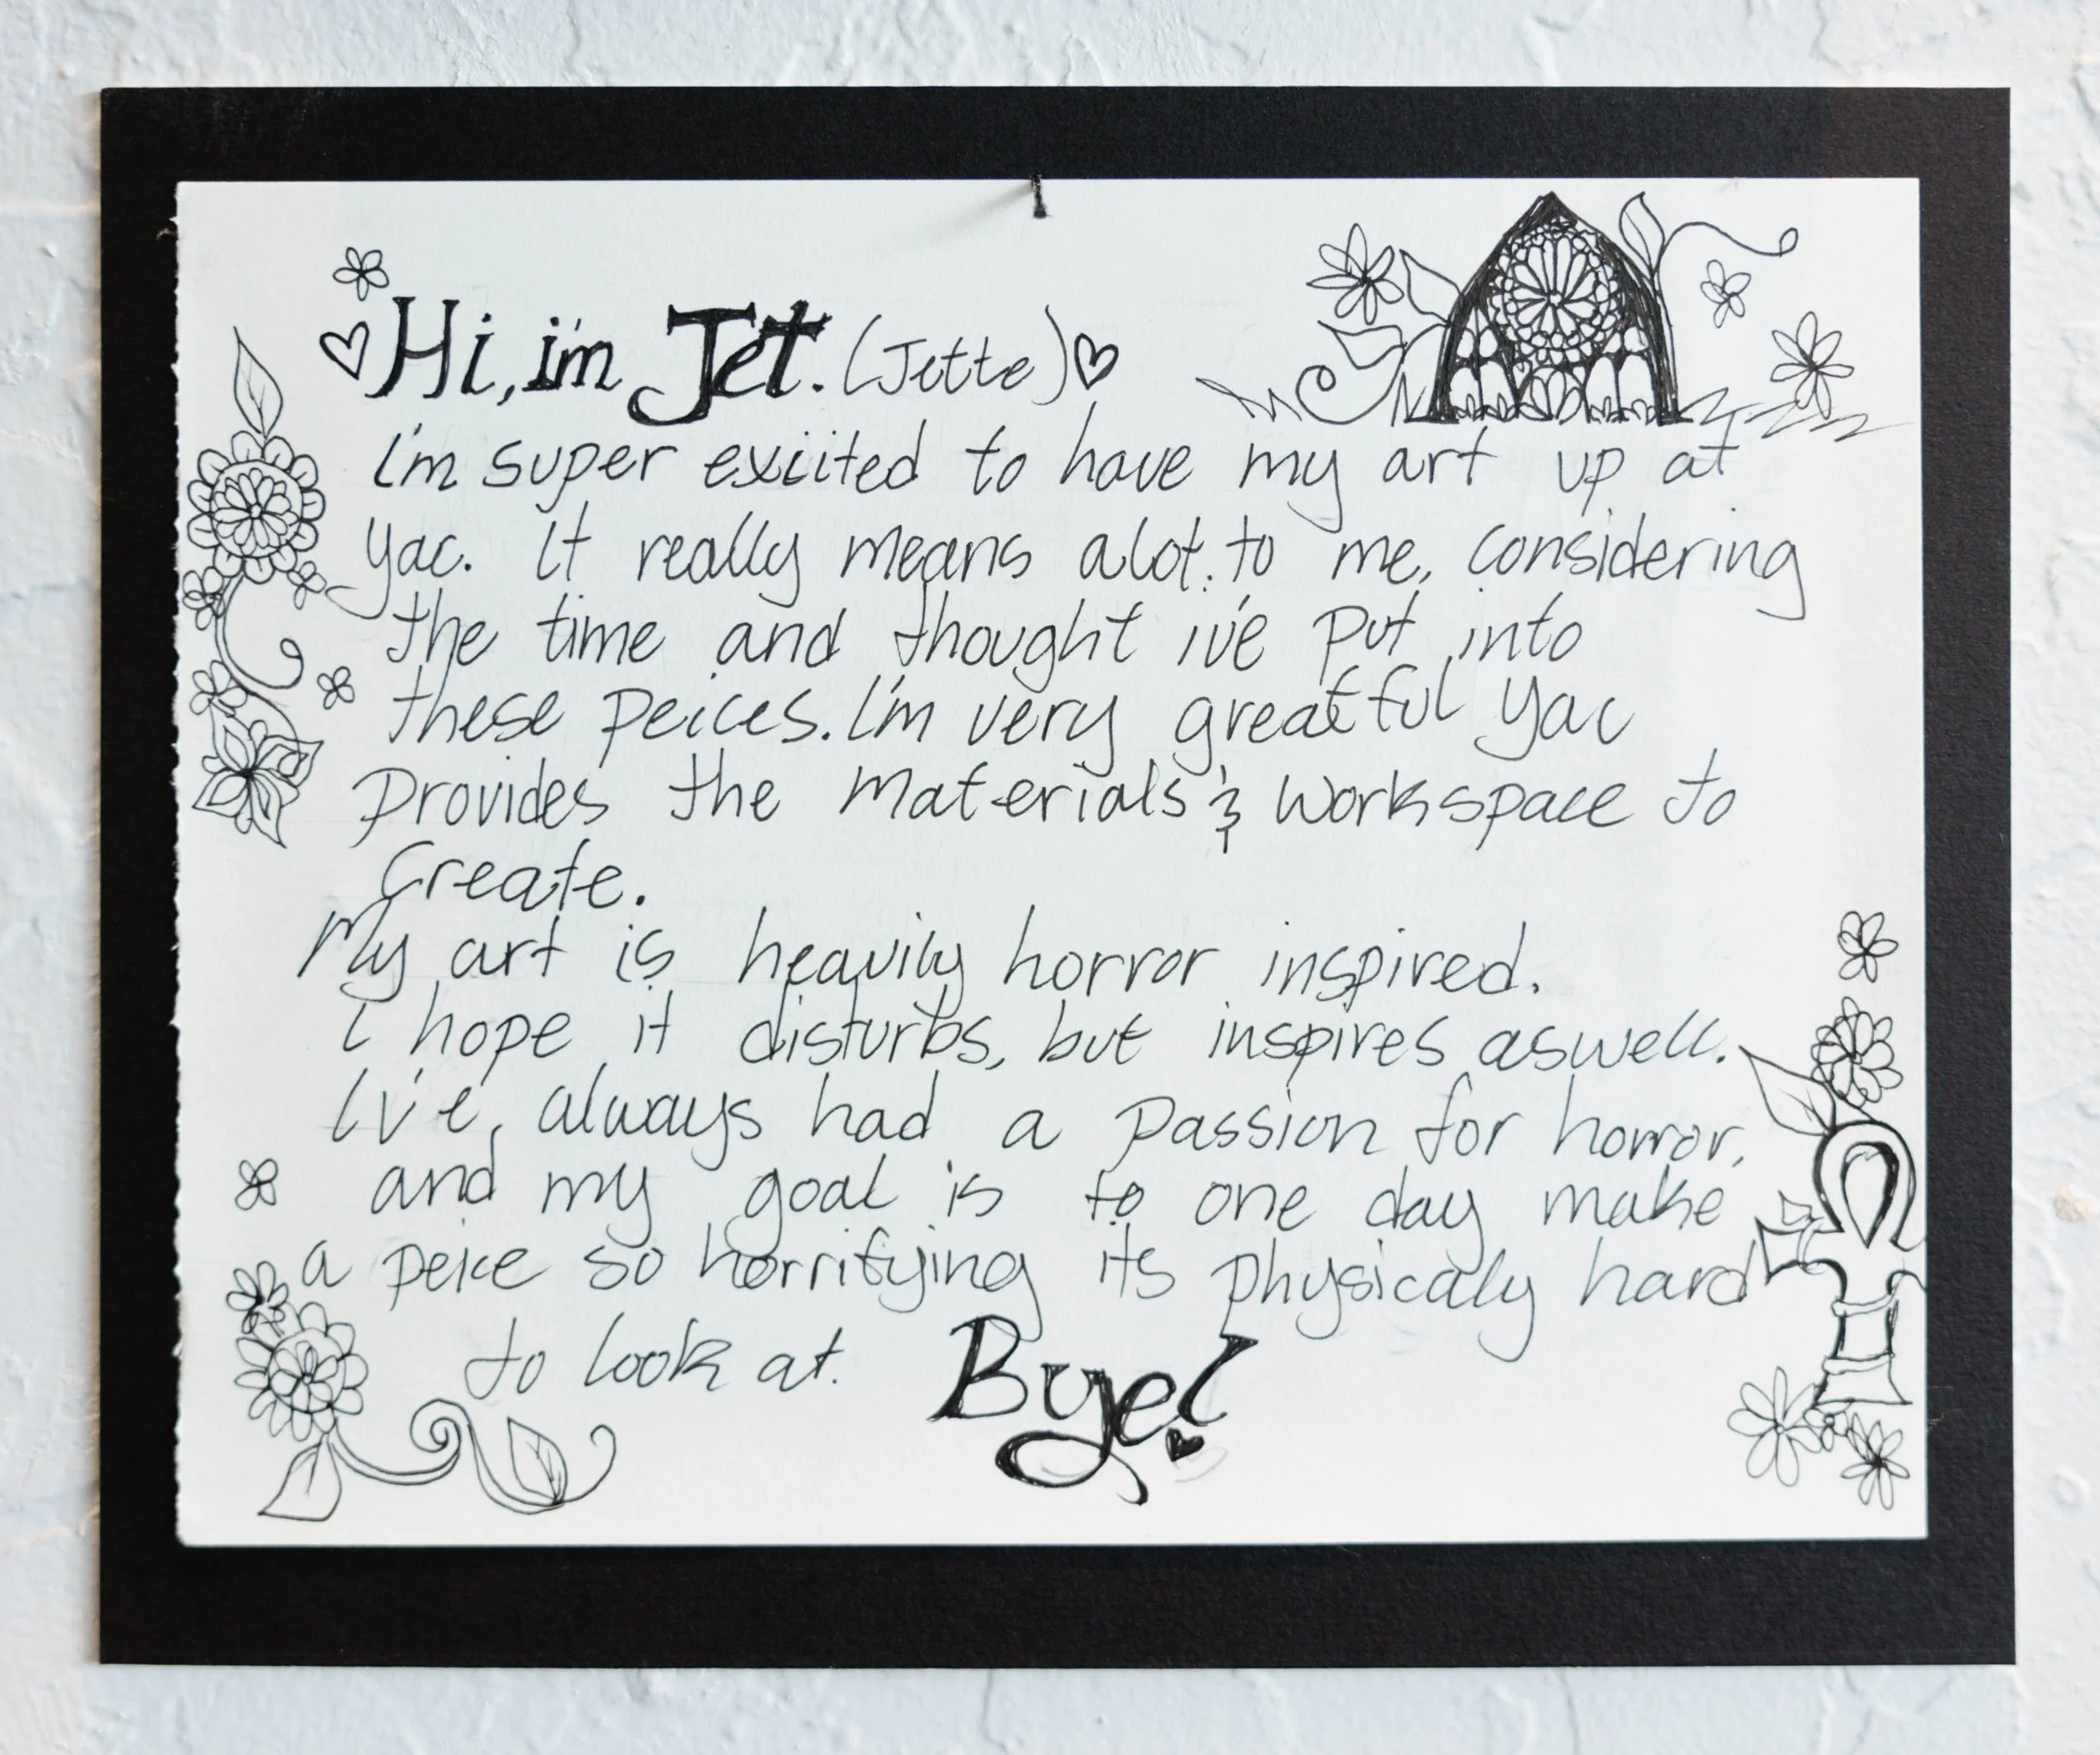 ♡Hi, i'm Jet. (Jette)♡
I'm super exciited to have my art up at
yac. It really means alot. to me, considering
the time and thought iv'e put into
these peices. I'm very greatful yac
provides the materials & workspace to
create.
My art is heavily horror inspired.
I hope it disturbs, but inspires aswell.
Iv'e, always had a passion for horror,
and my goal is to one day make
a peice so horrifying its physicaly hard
to look at. Bye!